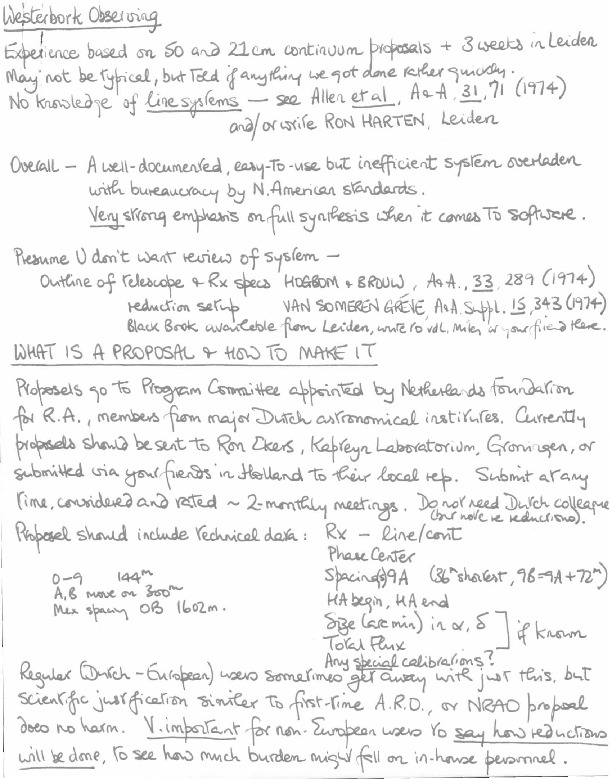 Westerbork Observing
Experience based on 50 and 21cm continuum proposals + 3 weeks in Leiden
May not be typical, but told if anything we got done rather quickly.
No knowledge of line systems — see Allen et al, A&A, 31, 71 (1974)
and/or write RON HARTEN, Leiden
Overall — A well-documented, easy-to-use but inefficient system overladen
with bureaucracy by N.American standards.
Very strong emphasis on full synthesis when it comes to software.
Presume U don't want review of system —
Outline of telescope & Rx specs HOGBOM & BROUW, A&A., 33, 289 (1974)
reduction setup VAN SOMEREN GRÉVE, A&A Suppl. 15, 343 (1974)
Black Book available from Leiden, write to vdL, Miley or your friend there.
WHAT IS A PROPOSAL & HOW TO MAKE IT
Proposals go to Program Committee appointed by Netherlands Foundation
for R.A., members from major Dutch astronomical institutes. Currently
proposals should be sent to Ron Ekers, Kapteyn Laboratorium, Groningen, or
submitted via your friends in Holland to their local rep. Submit at any
time, considered and rated ~ 2-monthly meetings. Do not need Dutch colleague
(but note re reductions).
Proposal should include technical data: Rx — line/cont
Phase Center
0-9 144m Spacing(s) 9A (36m shortest, 9B=9A+72m)
A,B move on 300m HA begin, HA end
Max spacing 0B 1602m. Size (arc min) in α, δ ] if known
Total Flux
Any special calibrations?
Regular (Dutch - European) users sometimes get away with just this, but
scientific justification similar to first-time A.R.O., or NRAO proposal
does no harm. V.important for non-European users to say how reductions
will be done, to see how much burden might fall on in-house personnel.